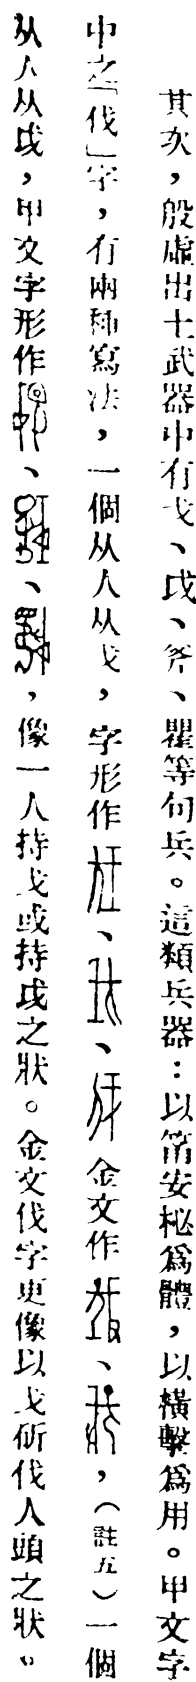 其次，殷虛出土武器中有戈、戉、斧、瞿等句兵。這類兵器：以筩安柲爲體，以橫擊爲用。甲文字
中之「伐」字，有兩種寫法，一個从人从戈，字形作、、金文作、，（註五）一個
从人从戉，甲文字形作、、，像一人持戈或持戉之狀。金文伐字更像以戈斫伐人頭之狀。